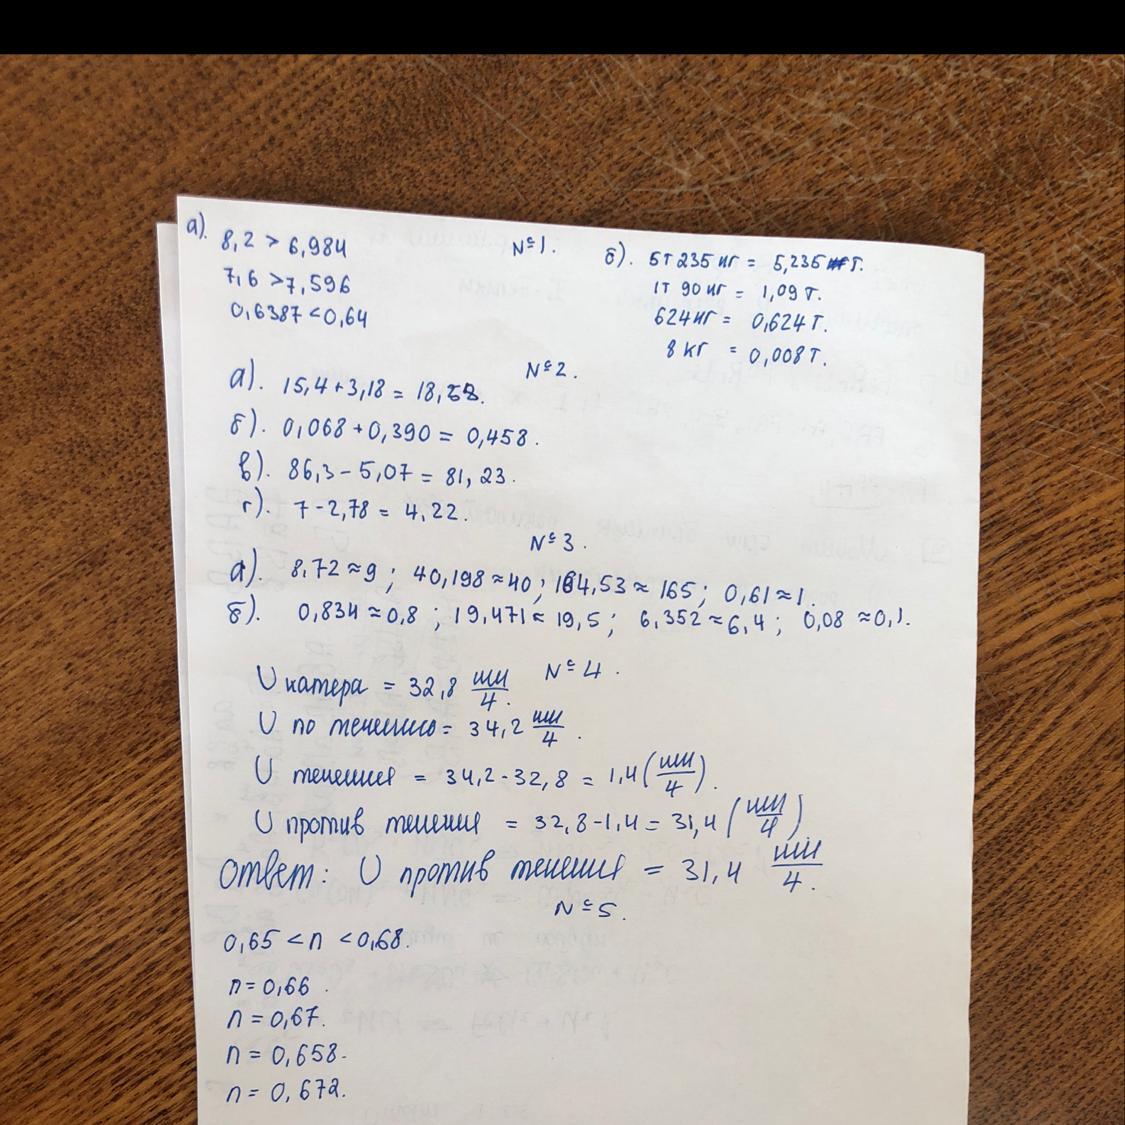 №1.
а). 8,2 > 6,984
7,6 > 7,596
0,6387 < 0,64
б). 5т 235 кг = 5,235 т.
1т 90 кг = 1,09 т.
624 кг = 0,624 т.
8 кг = 0,008 т.
№2.
а). 15,4 + 3,18 = 18,58.
б). 0,068 + 0,390 = 0,458.
в). 86,3 - 5,07 = 81,23.
г). 7 - 2,78 = 4,22.
№3.
а). 8,72 ≈ 9 ; 40,198 ≈ 40 ; 164,53 ≈ 165 ; 0,61 ≈ 1.
б). 0,834 ≈ 0,8 ; 19,471 ≈ 19,5 ; 6,352 ≈ 6,4 ; 0,08 ≈ 0,1.
№4.
υ катера = 32,8 км/ч.
υ по течению = 34,2 км/ч.
υ течения = 34,2 - 32,8 = 1,4 (км/ч).
υ против течения = 32,8 - 1,4 = 31,4 (км/ч)
Ответ: υ против течения = 31,4 км/ч.
№5.
0,65 < n < 0,68.
n = 0,66.
n = 0,67.
n = 0,658.
n = 0,672.